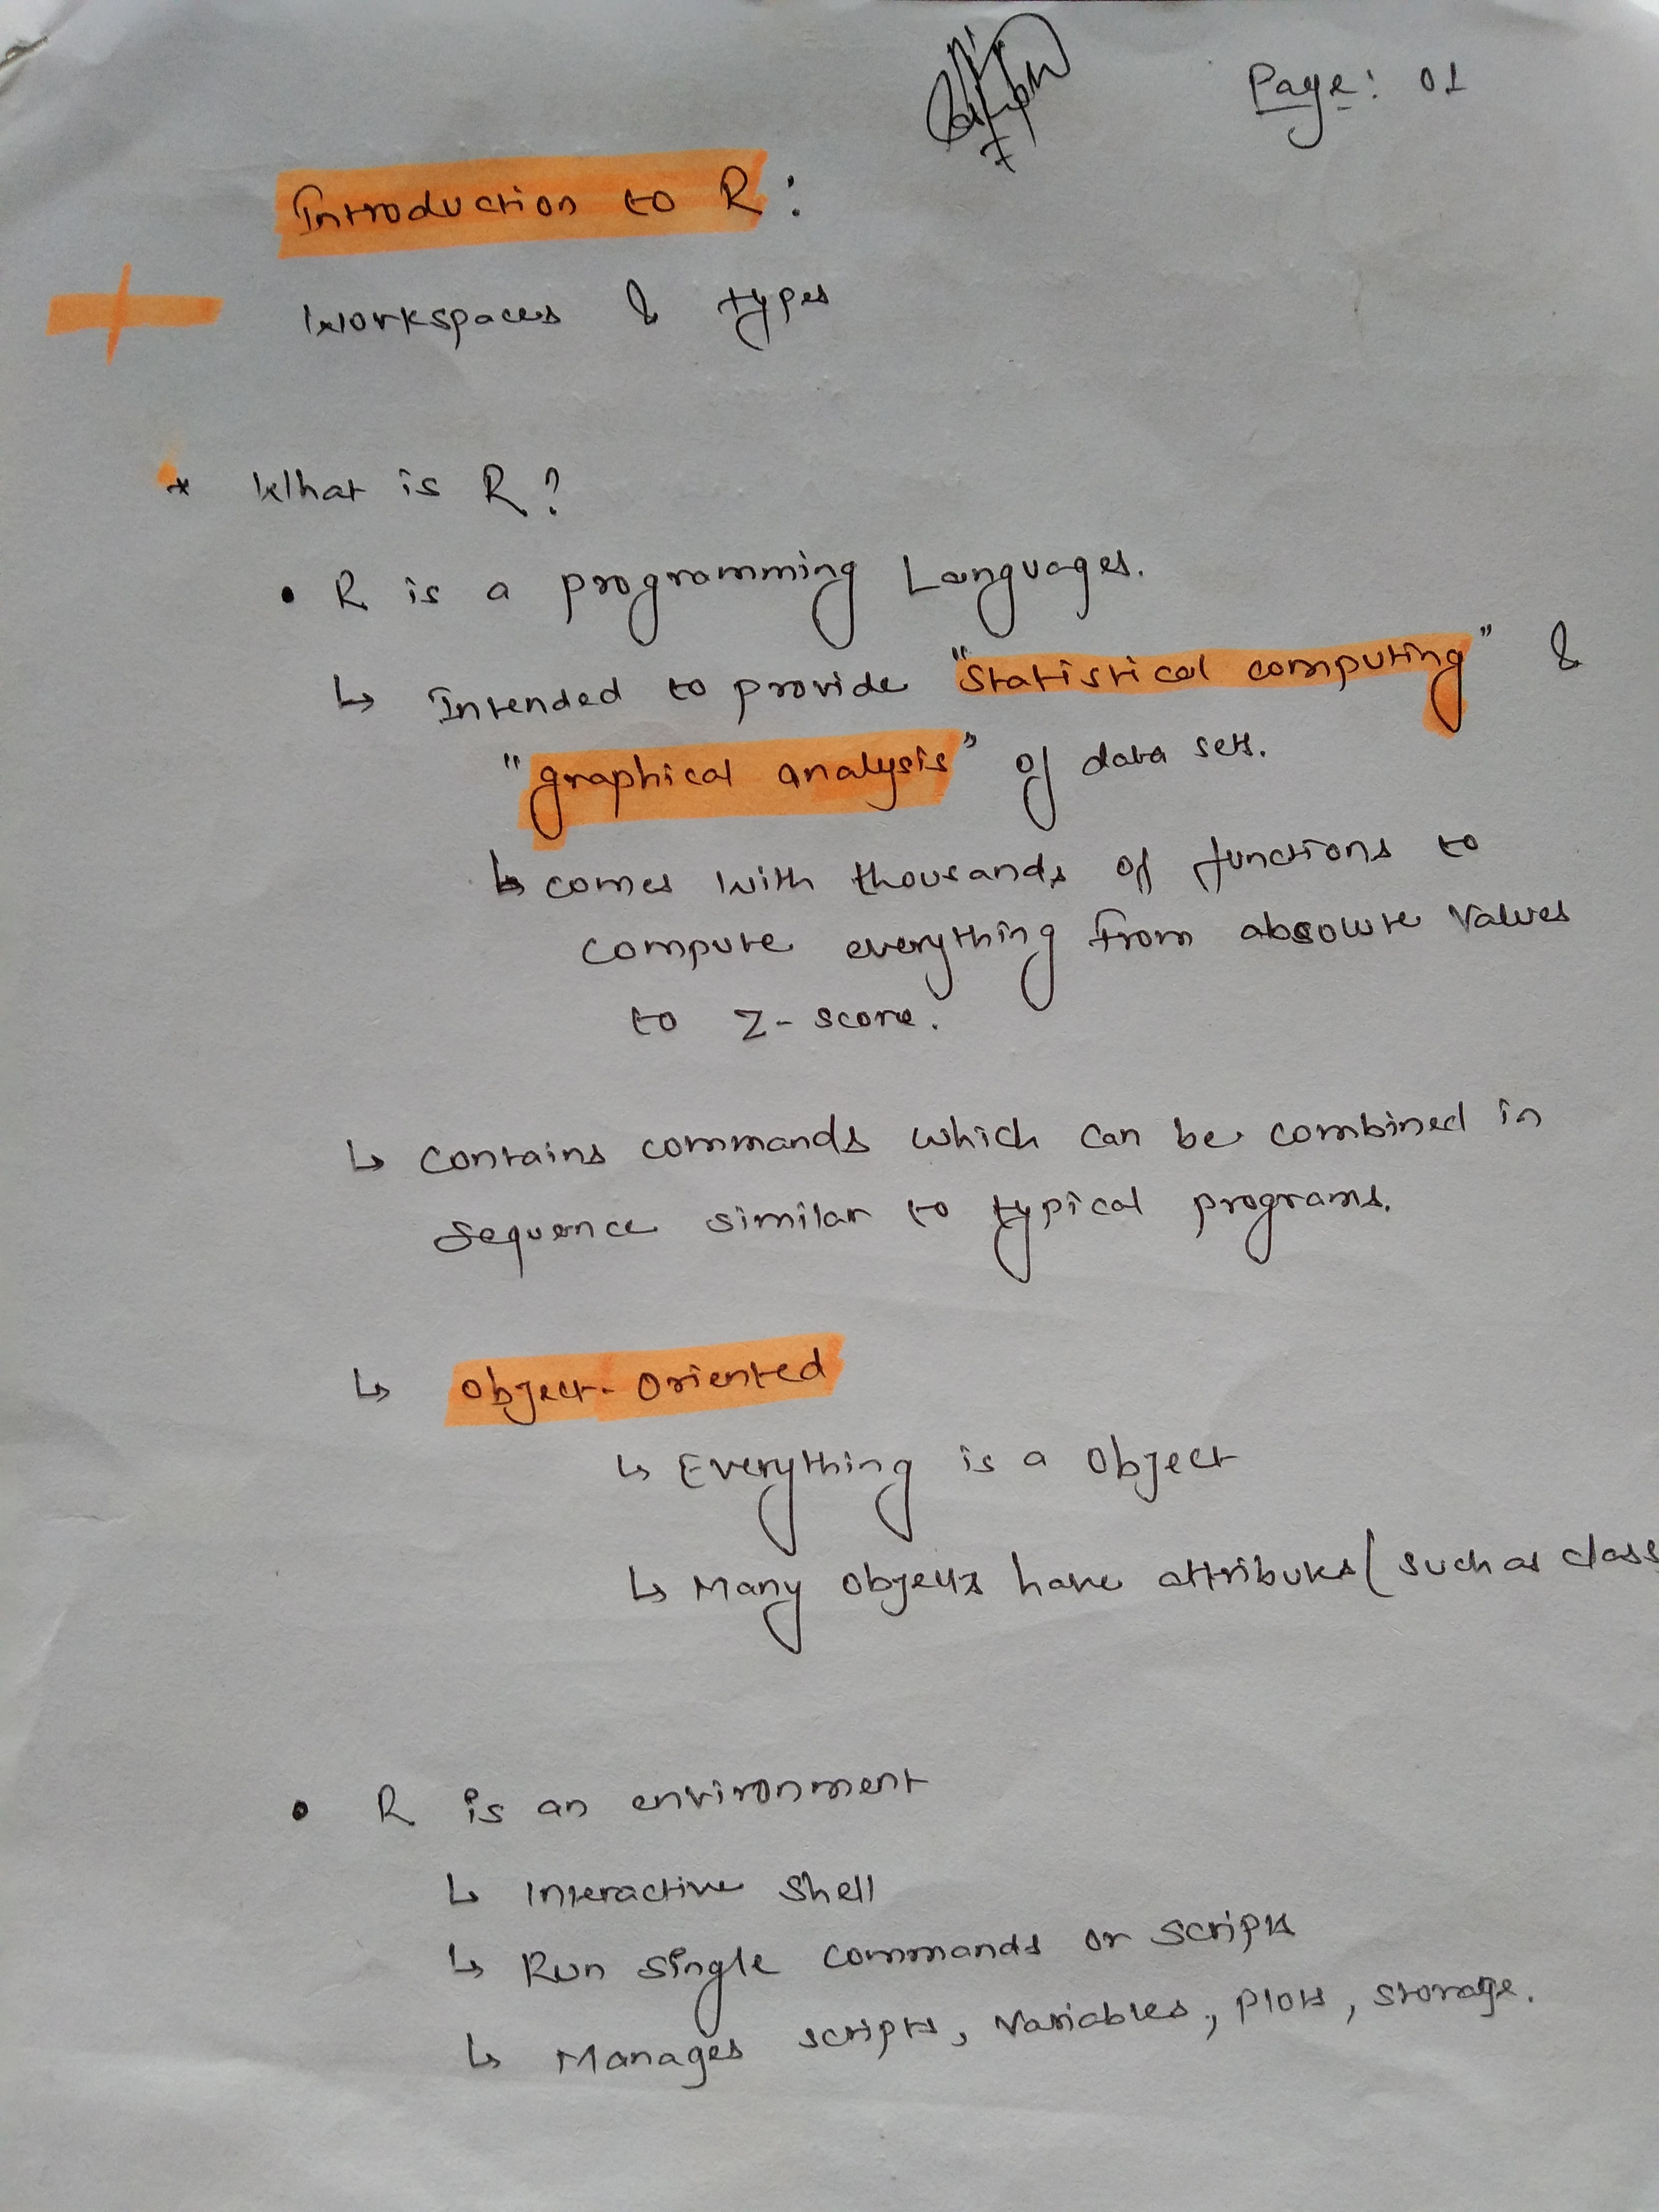 Page: 01
Introduction to R:
Workspaces & types
* What is R?
• R is a programming Languages.
↳ Intended to provide "Statistical computing" &
"graphical analysis" of data sets.
↳ comes with thousands of functions to
compute everything from absolute values
to Z-score.
↳ contains commands which can be combined in
sequence similar to typical programs.
↳ Object-Oriented
↳ Everything is a Object
↳ Many objects have attributes (such as class
• R is an environment
↳ Interactive Shell
↳ Run single commands or scripts
↳ Manages scripts, variables, plots, storage.